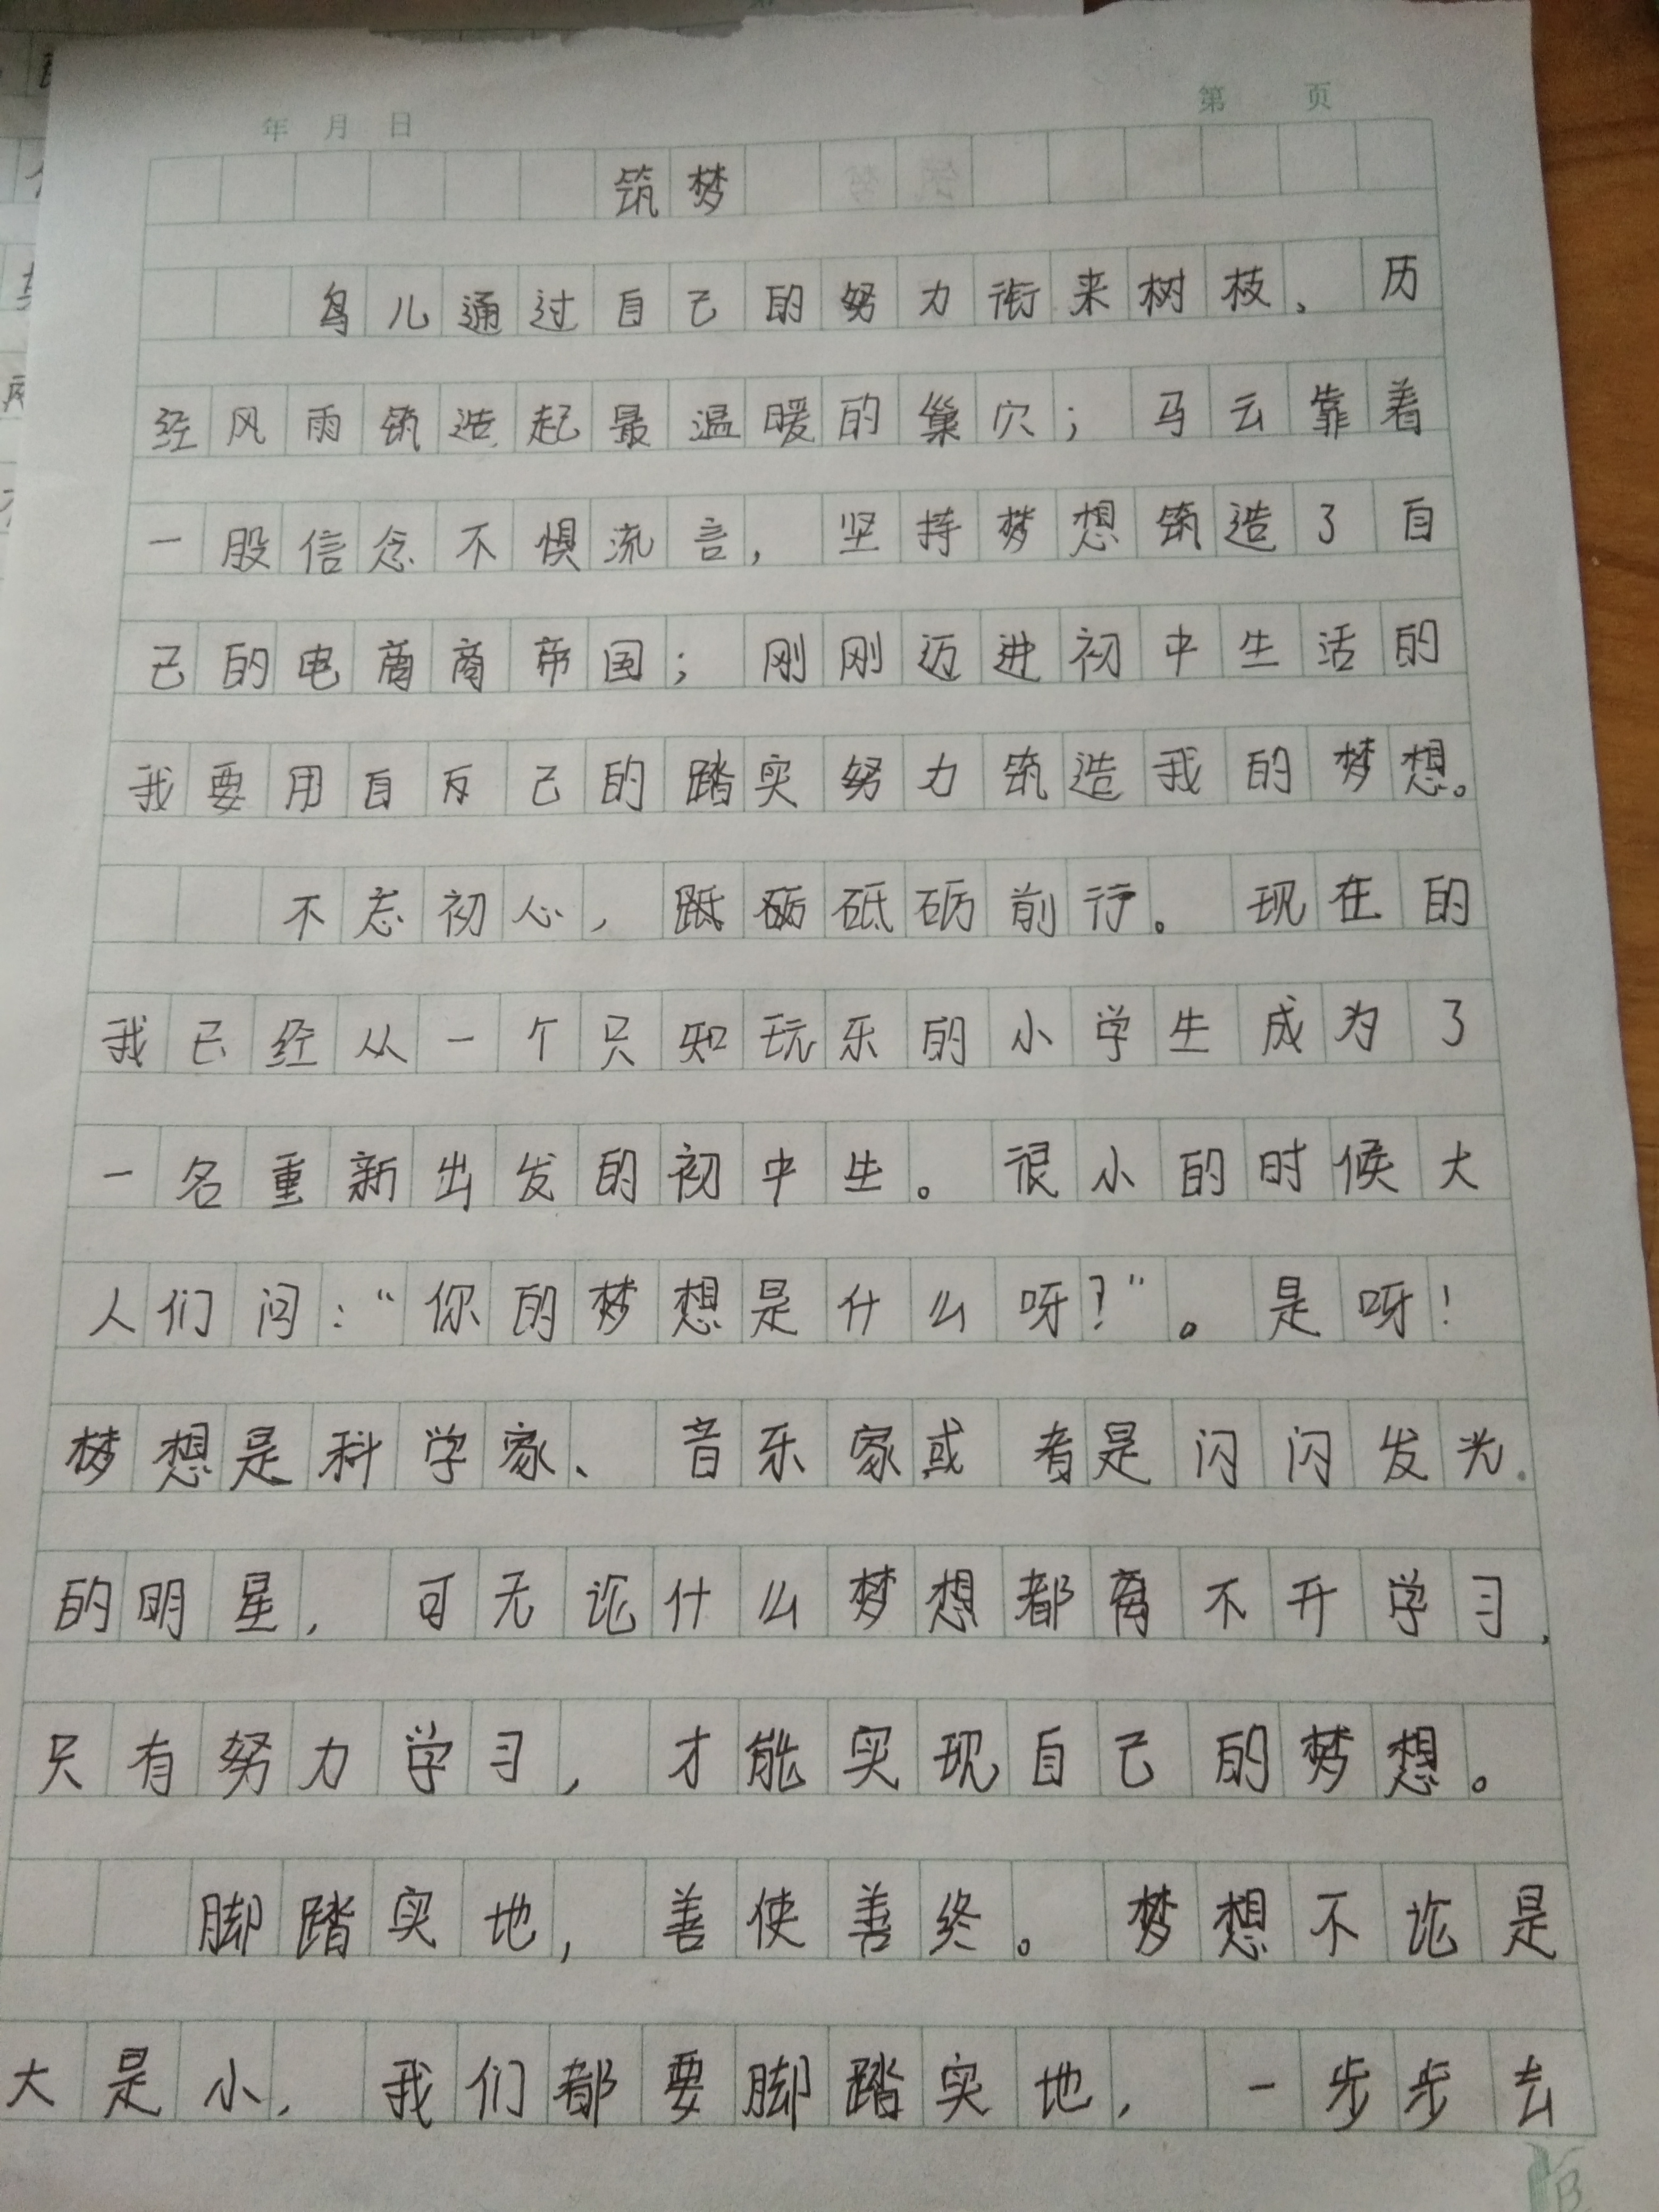 年 月 日
第 页
筑梦
鸟儿通过自己的努力衔来树枝、历
经风雨筑造起最温暖的巢穴；马云靠着
一股信念不惧流言，坚持梦想筑造了自
己的电商帝国；刚刚迈进初中生活的
我要用自己的踏实努力筑造我的梦想。
不忘初心，砥砺前行。现在的
我已经从一个只知玩乐的小学生成为了
一名重新出发的初中生。很小的时候大
人们问：“你的梦想是什么呀？”。是呀！
梦想是科学家、音乐家或者是闪闪发光
的明星，可无论什么梦想都离不开学习，
只有努力学习，才能实现自己的梦想。
脚踏实地，善使善终。梦想不论是
大是小，我们都要脚踏实地，一步步去